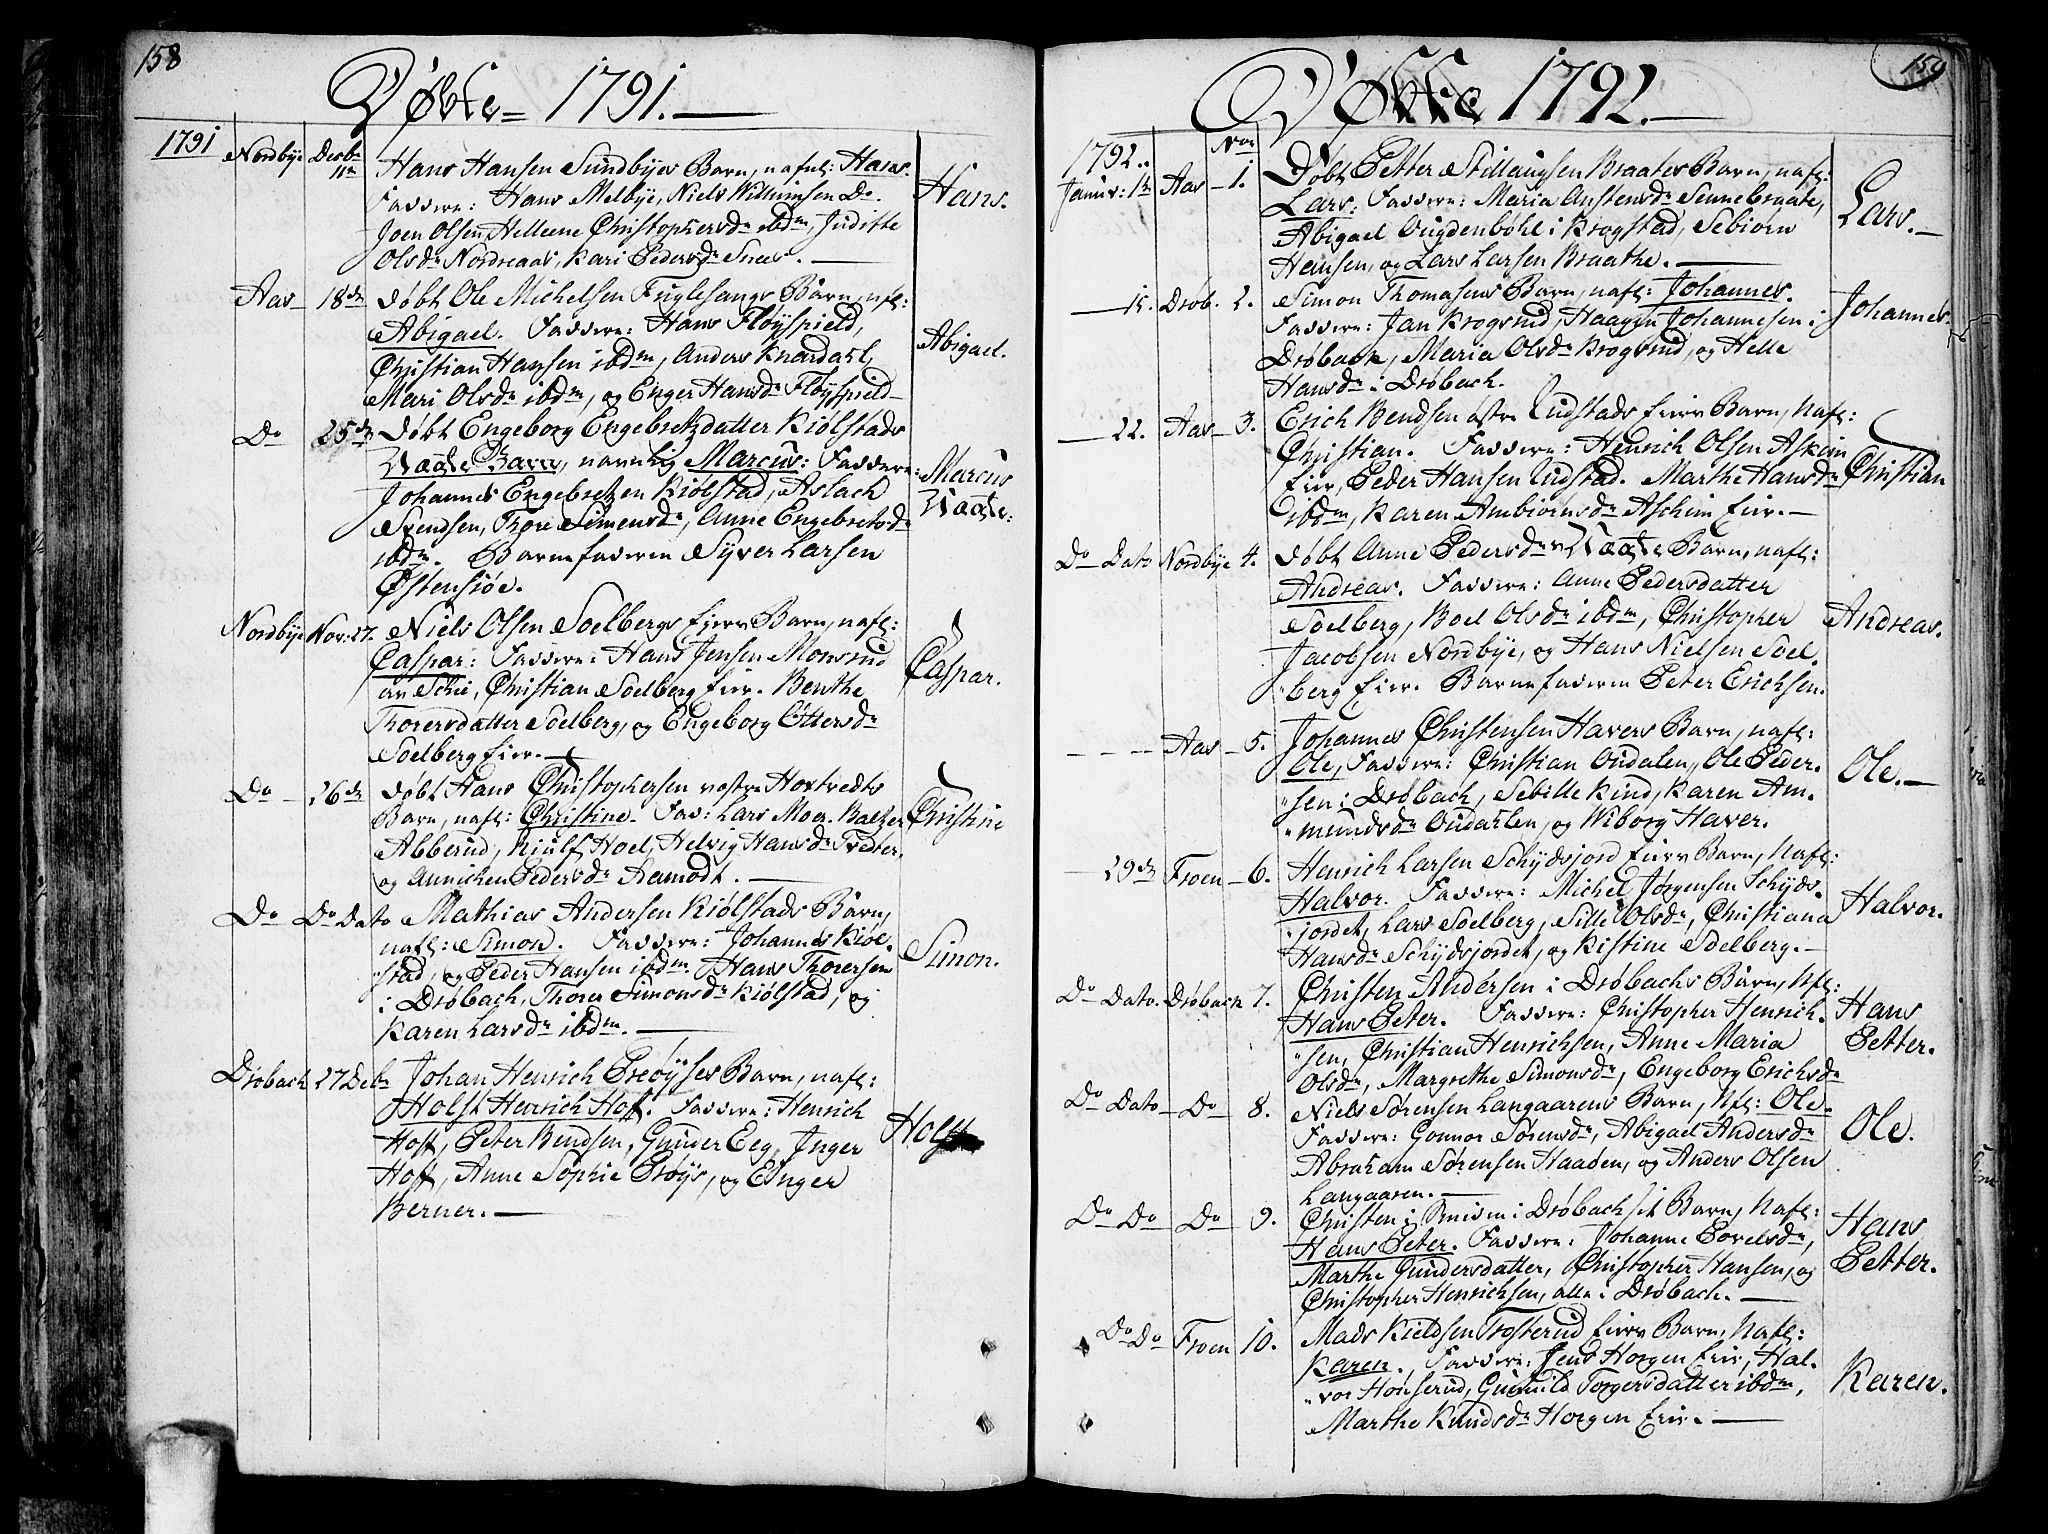 158
Døbte 1791.
1791
Nordbye Decbr 11te Hans Hansen Sundbyes Barn, nafnl: Hans.
Faddere: Hans Melbye, Niels Willumsen Do.
Joen Olsen, Helleene Christophersdr ibdm, Juditte
Olsdr Nordreaas, Kari Pedersdr Snees.
Hans.
Aas 18de døbt Ole Michelsen Fuglesangs Barn, nafl:
Abigael. Faddere: Hans Fløyspield,
Christian Hansen ibdm, Anders Knardahl,
Mari Olsdr ibdm, og Enger Hansdr Fløyspield
Abigael.
Do 25de døbt Engeborg Engebretzdatter Kiølstads
Uægte Barn, navnlig Marcus: Faddere:
Johannes Engebretzen Kiølstad, Aslach
Svendsen, Thore Simensdr, Anne Engebretsdr
ibdm. Barnefaderen Syver Larsen
Østensiøe.
Marcus
Uægte:
Nordbye Nov: 27. Niels Olsen Soelbergs Eiers Barn, nafl:
Caspar: Faddere: Hans Jensen Monsrud
av Schie, Christian Soelberg Eier. Benthe
Thorersdatter Soelberg, og Engeborg Ottersdr
Soelberg Eier.
Caspar.
Do 26de døbt Hans Christophersen vestre Hoxtvedts
Barn, nafl: Christine. Fad: Lars Moer. Baltzer
Abberud, Kiulf Hoel, Helvig Hansdr Tveter,
og Annichen Pedersdr Aamodt.
Christine
Do Do Dato Mathias Andersen Kiølstads Barn,
nafl: Simon. Faddere: Johannes Kiøl-
stad, og Peder Hansen ibdm. Hans Thorersen
i Drøbach, Thorer Simonsdr Kiølstad, og
Karen Larsdr ibdm.
Simon.
Drøbach 27 Debr Johan Henrich Prøyses Barn, nafl:
Holst Henrich Hoff. Faddere: Henrich
Hoff, Peter Bendsen, Gunder Eeg, Inger
Hoff, Anne Sophie Prøys, og Enger
Berner.
Holst
159
Døbte 1792.
1792. Nor
Januar: 1te Aas 1. Døbt Petter Stillaugsen Braates Barn, nafl:
Lars: Faddere: Maria Anstensdr Sennebraate,
Abigael Ougdenbøhl i Krogstad, Sebiørn
Hansen, og Lars Larsen Braathe.
Lars.
15. Drøb. 2. Simon Thomasens Barn, nafl: Johannes.
Faddere: Jan Krogsrud, Haagen Johannesen i
Drøbach, Maria Olsdr Krogsrud, og Helle
Hansdr i Drøbach.
Johannes.
22. Aas 3. Erich Bendsen østre Rudstads Eiers Barn, Nafl:
Christian. Faddere: Henrich Olsen Askim
Eier, Peder Hansen Rudstad. Marthe Hansdr
ibdm, Karen Ambiørnsdr Aschim Eier.
Christian
Do Dato Nordbye 4. døbt Anne Pedersdrs Uægte Barn, nafl:
Andreas. Faddere: Anne Pedersdatter
Soelberg, Boel Olsdr ibdm, Christopher
Jacobsen Nordbye, og Hans Nielsen Soel-
berg Eier. Barnefaderen Peter Erichsen.
Andreas.
Aas 5. Johannes Christensen Havers Barn, nafl:
Ole, Faddere: Christian Oudalen, Ole Peder-
sen i Drøbach, Sebille Kind, Karen Am-
mundsdr Oudahlen, og Wiborg Haver.
Ole.
29de Froen 6. Henrich Larsen Schydsjord Eiers Barn, Nafl:
Halvor. Faddere: Michel Jørgensen Schyds-
jordet, Lars Soelberg, Sille Olsdr, Christiana
Hansdr Schydsjordet, og Kistine Soelberg.
Halvor.
Do Dato. Drøbach 7. Christen Andersen i Drøbachs Barn, Nfl:
Hans Peter. Faddere: Christopher Henrich-
sen, Christian Henrichsen, Anne Maria
Olsdr, Margrethe Simonsdr, Engeborg Erichsdr
Hans
Petter.
Do Dato Do 8. Niels Sørensen Langaarens Barn, Nfl: Ole.
Faddere: Gonnor Sørensdr, Abigael Andersdr
Abraham Sørensen Haaøen, og Anders Olsen
Langaaren.
Ole.
Do Do Do 9. Christen i Drøbach sit Barn, Nafl:
Hans Peter. Faddere: Johanne Povelsdr,
Marthe Gundersdatter, Christopher Hansen, og
Christopher Henrichsen, alle i Drøbach.
Hans
Petter.
Do Do Froen 10. Mads Kieldsen Trosterud Eiers Barn, Nafl:
Karen. Faddere: Jens Horgen Eier, Hal-
vor Hønserud, Gunild Torgersdatter ibdm,
Marthe Knudsdr Horgen Eier.
Karen.